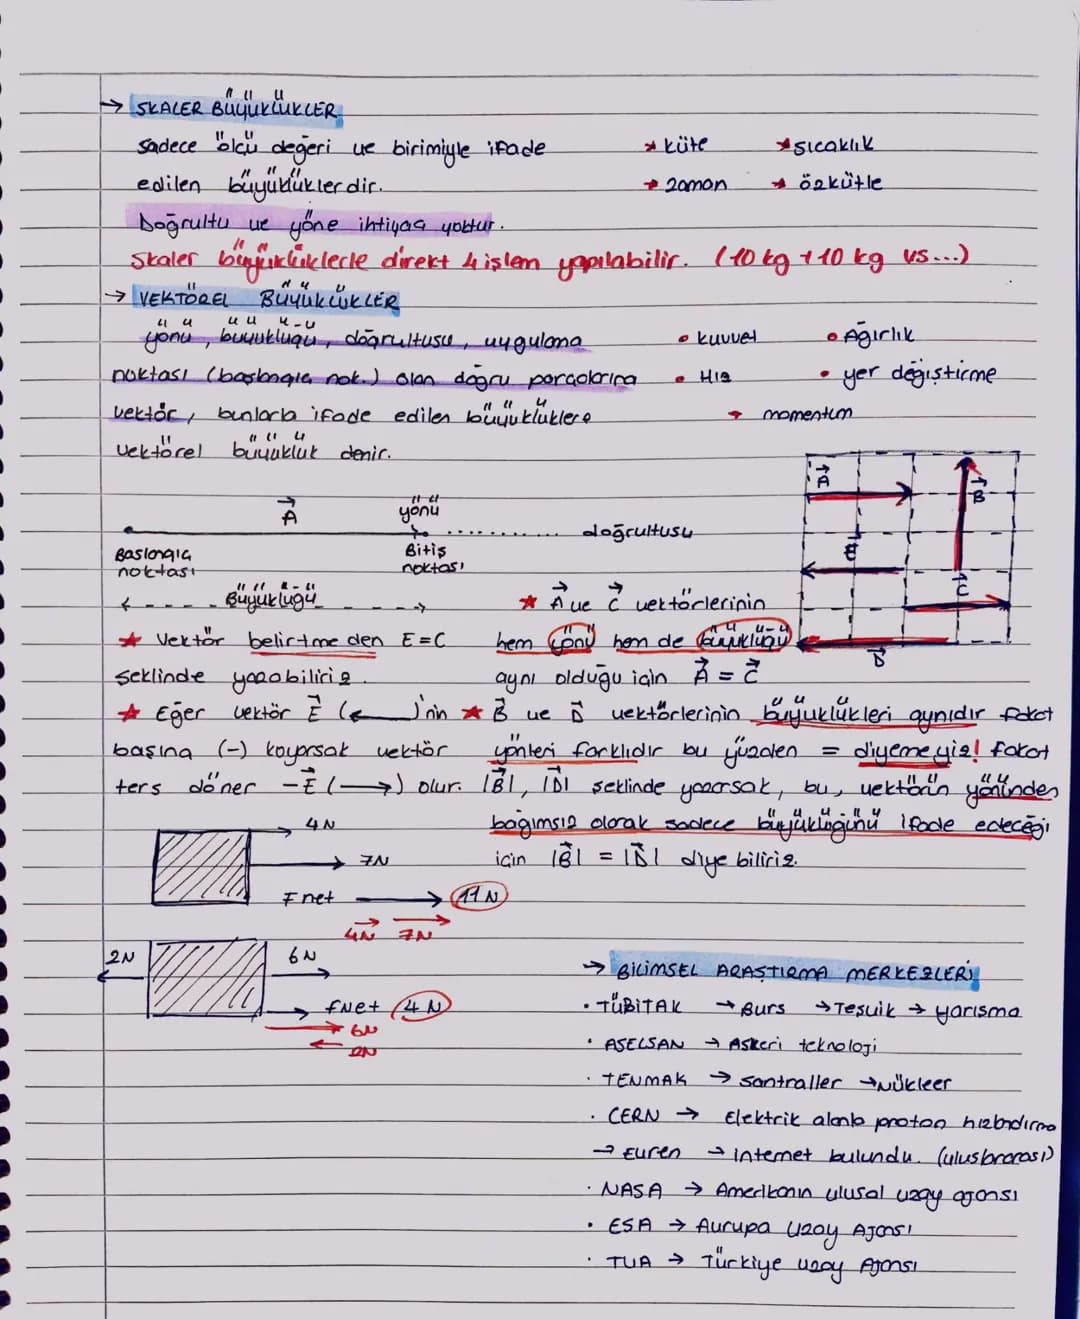 → SKALER BÜYÜKLÜKLER
sadece ölçü değeri ve birimiyle ifade
edilen büyüklüklerdir.
* küte * sıcaklık
* zaman * özkütle
Doğrultu ve yöne ihtiyaç yoktur.
Skaler büyüklüklerle direkt 4 işlem yapılabilir. (10 kg + 10 kg vs...)
→ VEKTÖREL BÜYÜKLÜKLER
yönü, büyüklüğü, doğrultusu, uygulama
noktası (başlangıç nok.) olan doğru parçalarına
vektör, bunlarla ifade edilen büyüklüklere
vektörel büyüklük denir.
• kuvvet • Ağırlık
• Hız • yer değiştirme
• momentum
A B E C D
A yönü
doğrultusu
Başlangıç noktası
Bitiş noktası
Büyüklüğü
* Vektör belirtmeden E=C
şeklinde yazabiliriz.
* Eğer vektör E (←)'nin
başına (-) koyarsak vektör
ters döner -E (→) olur.
* A ve C vektörlerinin
hem yönü hem de büyüklüğü
aynı olduğu için A = C
* B ve D vektörlerinin büyüklükleri aynıdır fakat
yönleri farklıdır bu yüzden = diyemeyiz! fakat
|B|, |D| şeklinde yazarsak, bu, vektörün yönünden
bağımsız olarak sadece büyüklüğünü ifade edeceği
için |B| = |D| diyebiliriz.
4N
7N
Fnet → 11 N
4N 7N
2N 6N
fNet 4 N
6N
2N
→ BİLİMSEL ARAŞTIRMA MERKEZLERİ
• TÜBİTAK → Burs → Teşvik → yarışma
• ASELSAN → Askeri teknoloji
• TENMAK → santraller → Nükleer
• CERN → Elektrik alanla proton hızlandırma
→ Evren → internet bulundu. (uluslararası)
• NASA → Amerikanın ulusal uzay ajansı
• ESA → Avrupa Uzay Ajansı
• TUA → Türkiye uzay Ajansı